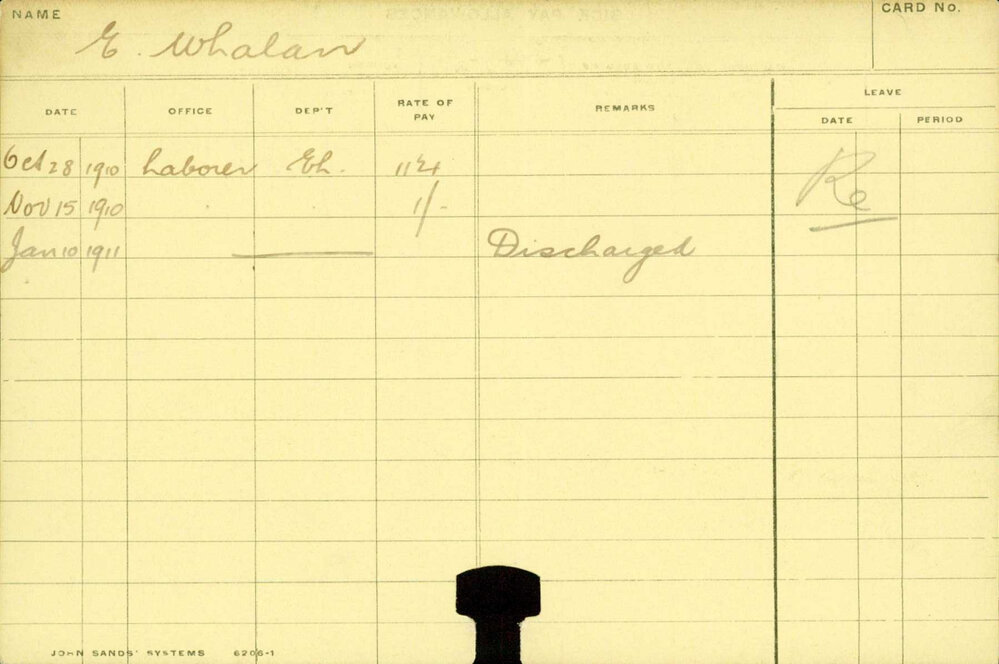 NAME E. Whalan CARD No.
LEAVE
DATE OFFICE DEP'T RATE OF PAY REMARKS DATE PERIOD
Oct 28 1910 Laborer Eh. Re
Nov 15 1910 1/-
Jan 10 1911 Discharged
JOHN SANDS' SYSTEMS 6206-1